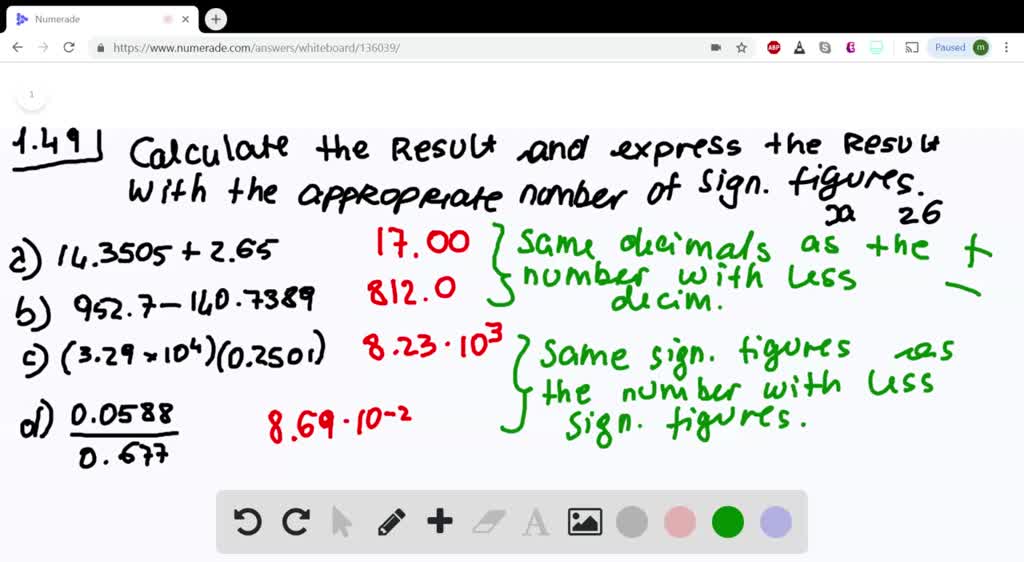 Numerade
https://www.numerade.com/answers/whiteboard/136039/
ABP
Paused m
1
1.49 Calculate the Result and express the Result
with the appropriate number of sign. figures.
26
a) 14.3505 + 2.65 17.00 same decimals as the +
b) 952.7 - 140.7389 812.0 number with less -
decim.
c) (3.29 × 10⁴)(0.2501) 8.23 · 10³ same sign. figures as
the number with less
d) 0.0588 8.69 · 10⁻² sign. figures.
0.677
A